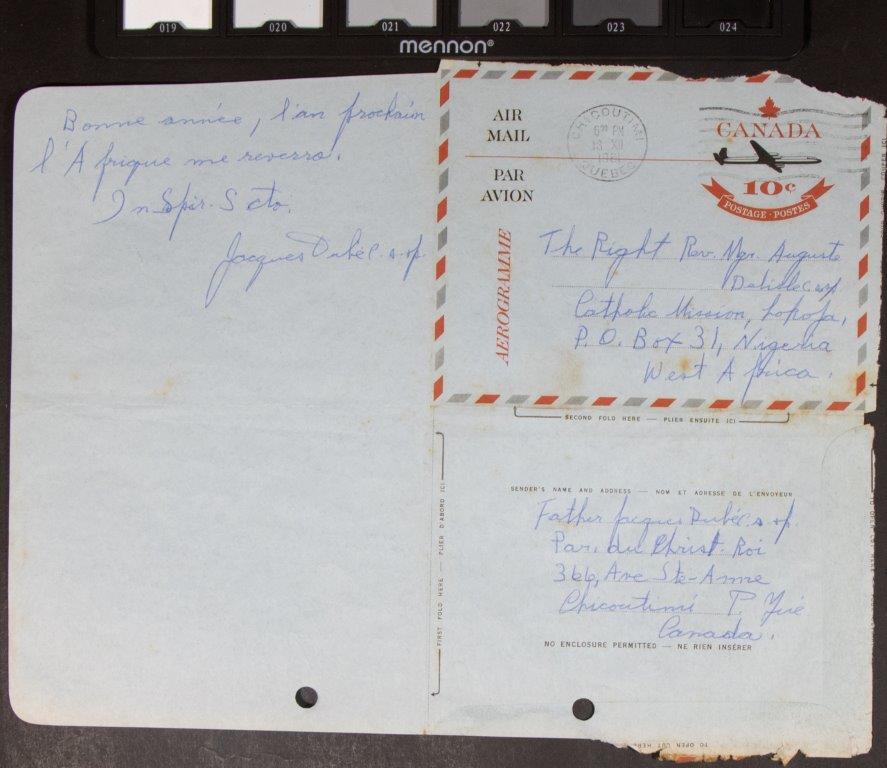 019 020 021 022 023 024
mennon®
Bonne année, l'an prochain
l'Afrique me reverra.
In Spir. Scto.
Jacques Dubé c.s.sp.
AIR
MAIL
PAR
AVION
AEROGRAMME
CHICOUTIMI
PM
XII
QUEBEC
CANADA
10¢
POSTAGE · POSTES
The Right Rev. Mgr. Auguste
Delisle c.s.sp.
Catholic Mission, Lokoja,
P.O. Box 31, Nigeria
West Africa.
SECOND FOLD HERE — PLIER ENSUITE ICI
FIRST FOLD HERE — PLIER D'ABORD ICI
SENDER'S NAME AND ADDRESS — NOM ET ADRESSE DE L'ENVOYEUR
Father Jacques Dubé c.s.sp.
Par. du Christ-Roi
366, Ave Ste-Anne
Chicoutimi P.
Canada.
NO ENCLOSURE PERMITTED — NE RIEN INSÉRER
TO OPEN CUT HERE